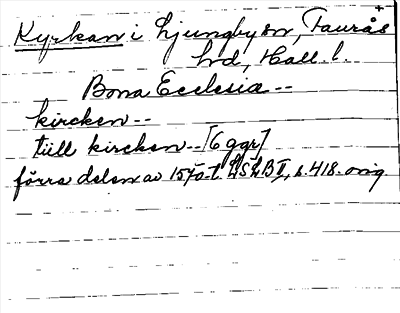 Kyrkan i Ljungby sn, Faurås
hd, Hall. l.
Bona Ecclesia --
kircken --
tiill kircken -- [6 ggr]
förra delen av 1570-t. LSLB II, s. 418. orig.